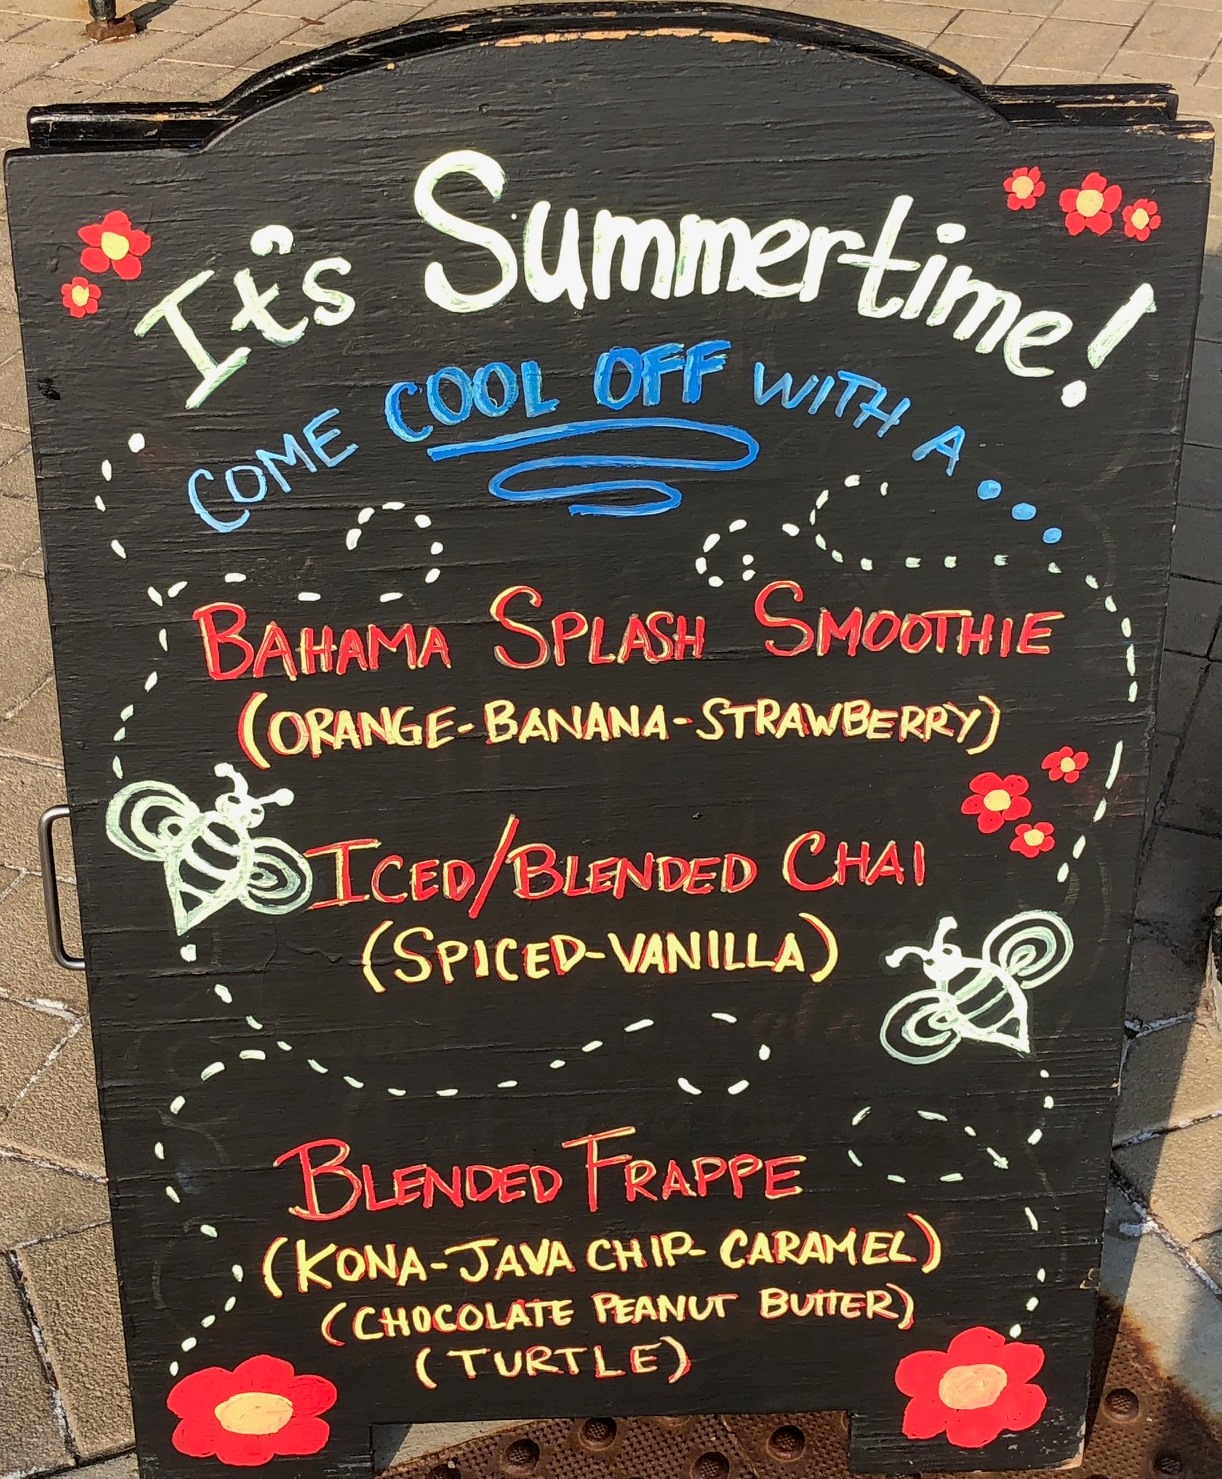 It's Summertime!
COME COOL OFF WITH A...
BAHAMA SPLASH SMOOTHIE
(ORANGE-BANANA-STRAWBERRY)
ICED/BLENDED CHAI
(SPICED-VANILLA)
BLENDED FRAPPE
(KONA-JAVA CHIP-CARAMEL)
(CHOCOLATE PEANUT BUTTER)
(TURTLE)